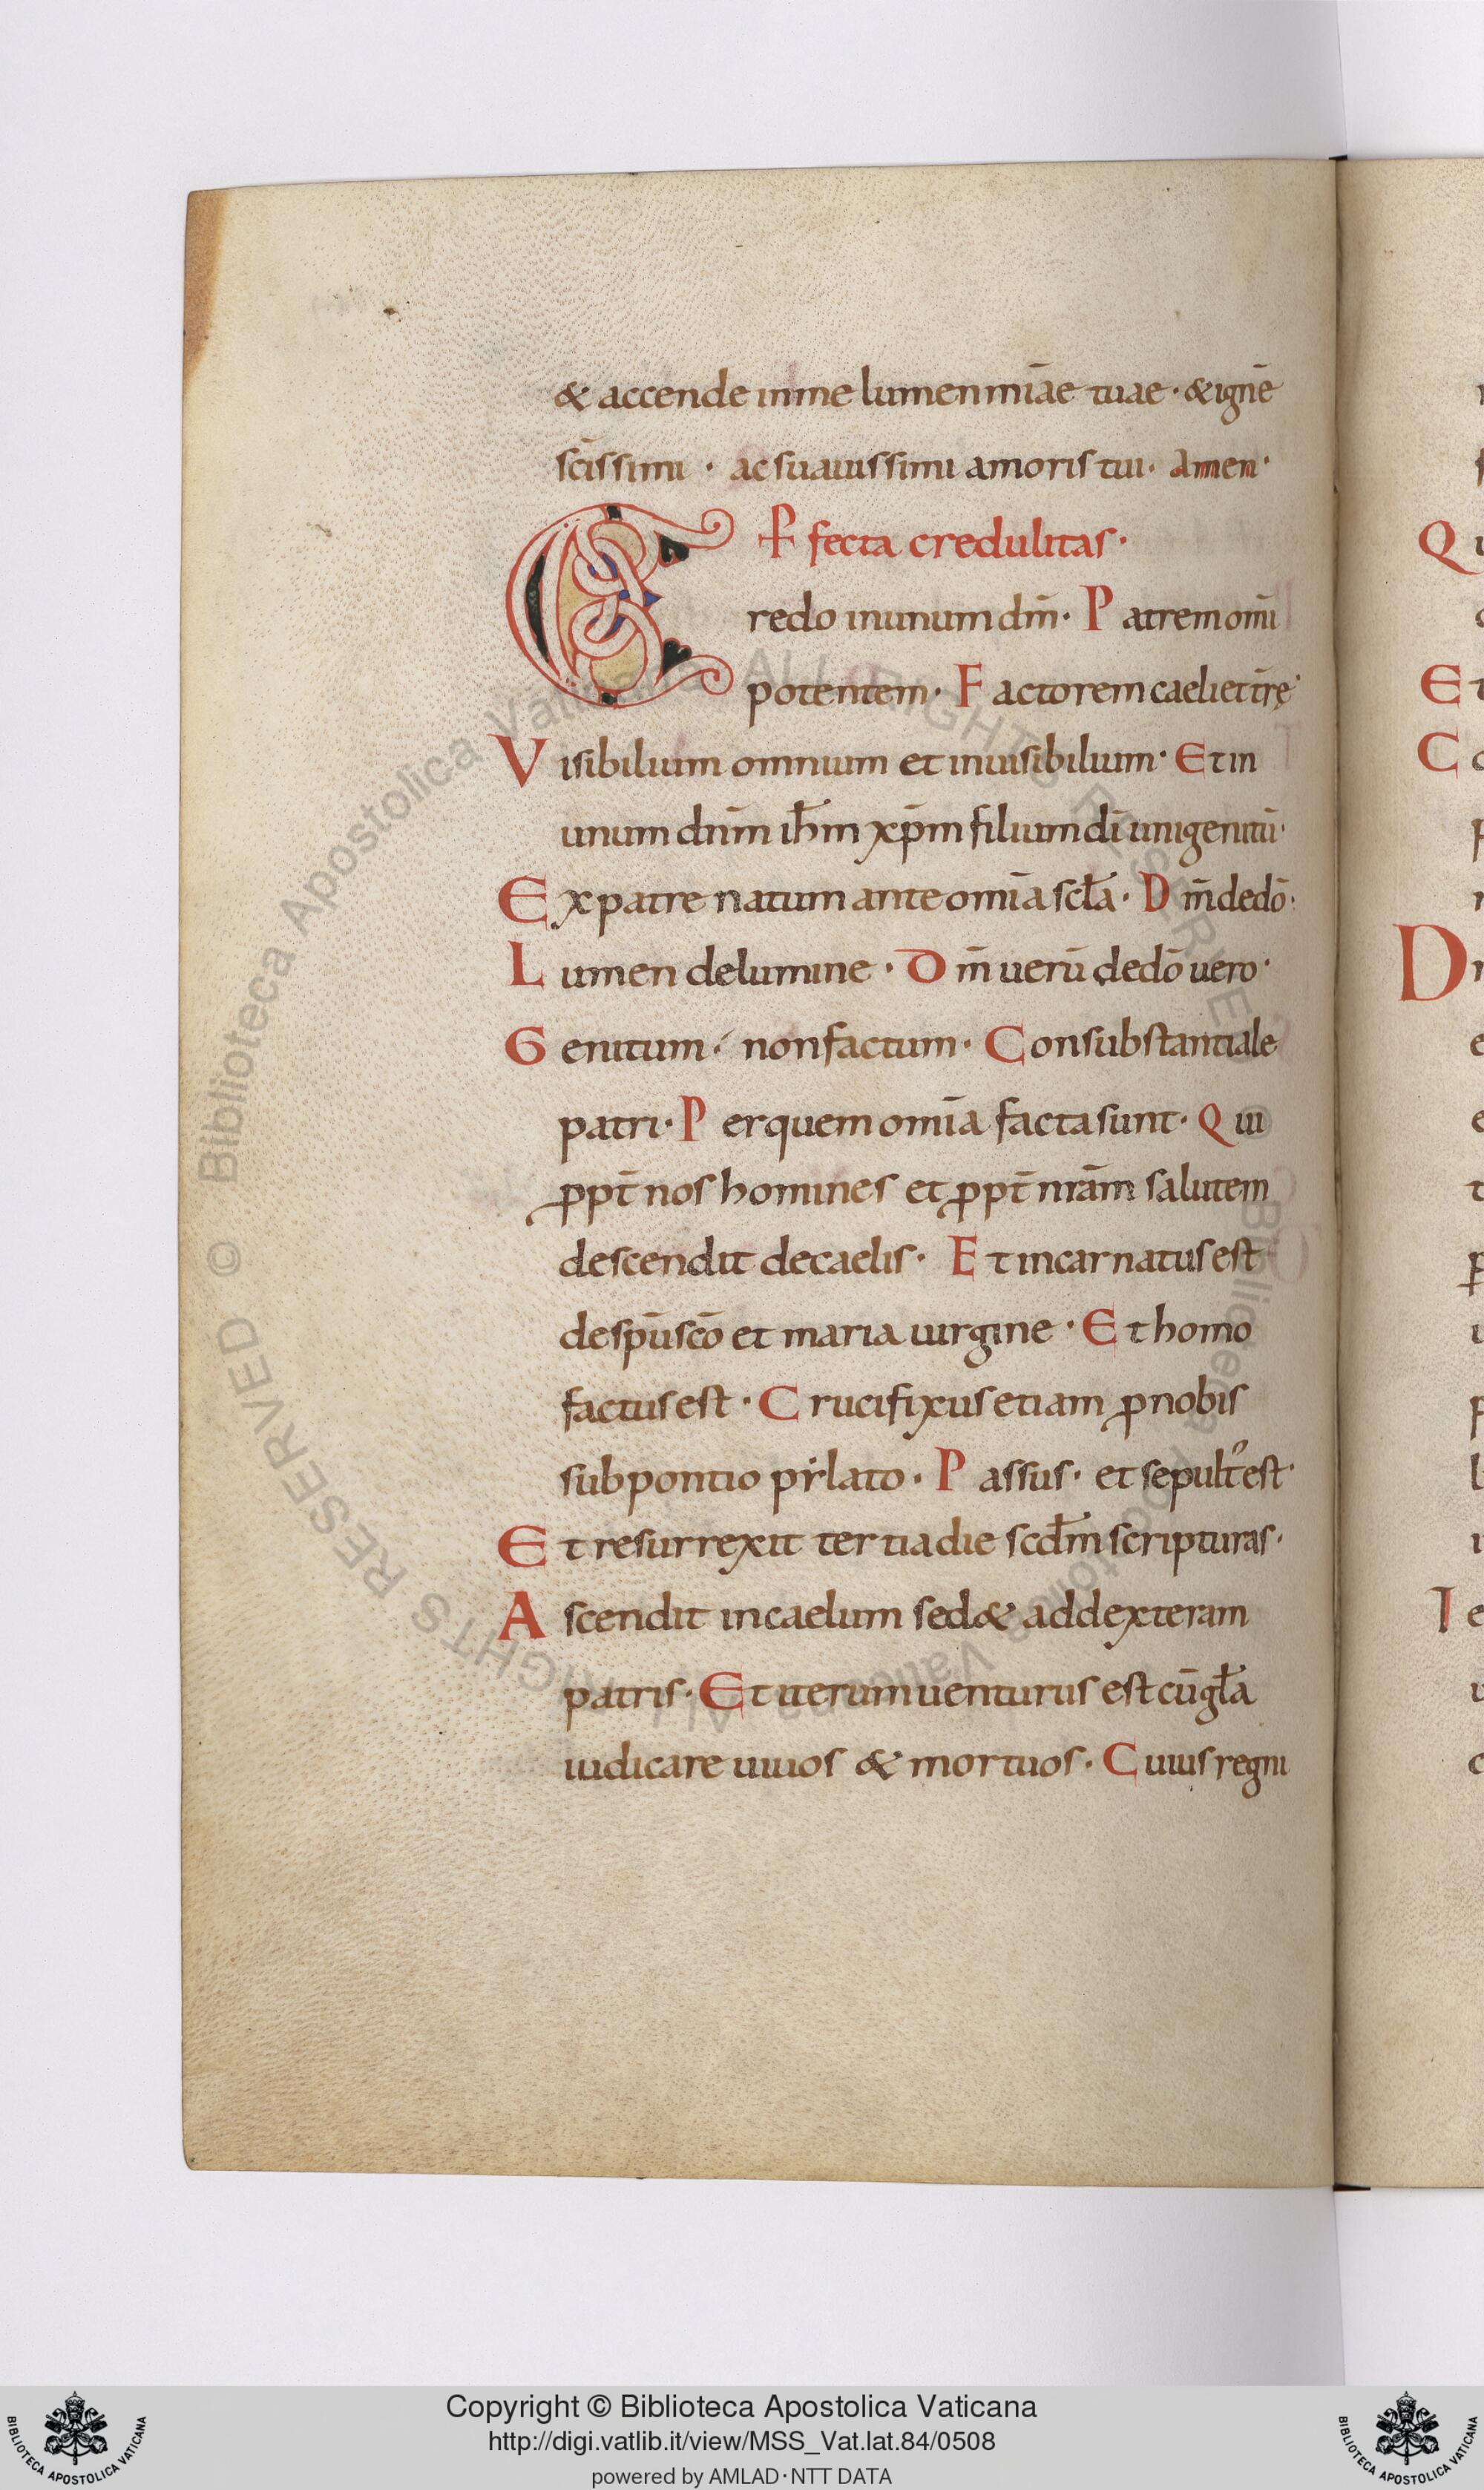 & accende inme lumen mīae tuae · & ignē
scīssimi · ac suauissimi amoris tui · Amen ·
P̄fecta credulitas ·
Credo inunum dm̄ · Patrem omī
potentem · Factorem caeli et tr̄e ·
Visibilium omnium et inuisibilium · Et in
unum dnm̄ ihm̄ xp̄m filium dī unigenitū ·
Ex patre natum ante omīa scl̄a · Dm̄ de dō ·
Lumen de lumine · Dm̄ uerū de dō uero ·
Genitum · non factum · Consubstantiale
patri · Per quem omīa facta sunt · Qui
ꝓpt̄ nos homines et ꝓpt̄ nrām salutem
descendit de caelis · Et incarnatus est
de spū scō et maria uirgine · Et homo
factus est · Crucifixus etiam ꝓ nobis
sub pontio pilato · Passus · et sepult᾽ est ·
Et resurrexit tertia die scdm̄ scripturas ·
Ascendit in caelum sed& ad dexteram
patris · Et iterum uenturus est cū gl̄a
iudicare uiuos & mortuos · Cuius regni
Copyright © Biblioteca Apostolica Vaticana
http://digi.vatlib.it/view/MSS_Vat.lat.84/0508
powered by AMLAD·NTT DATA